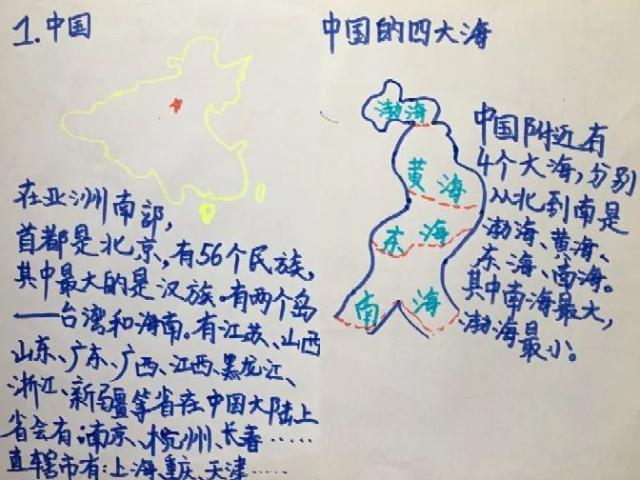 1.中国
在亚洲南部,
首都是北京,有56个民族,
其中最大的是汉族。有两个岛
——台湾和海南。有江苏、山西
山东、广东、广西、江西、黑龙江、
浙江、新疆等省在中国大陆上
省会有:南京、杭州、长春……
直辖市有:上海、重庆、天津……
中国的四大海
渤海
黄海
东海
南海
中国附近有
4个大海,分别
从北到南是
渤海、黄海、
东海、南海。
其中南海最大,
渤海最小。